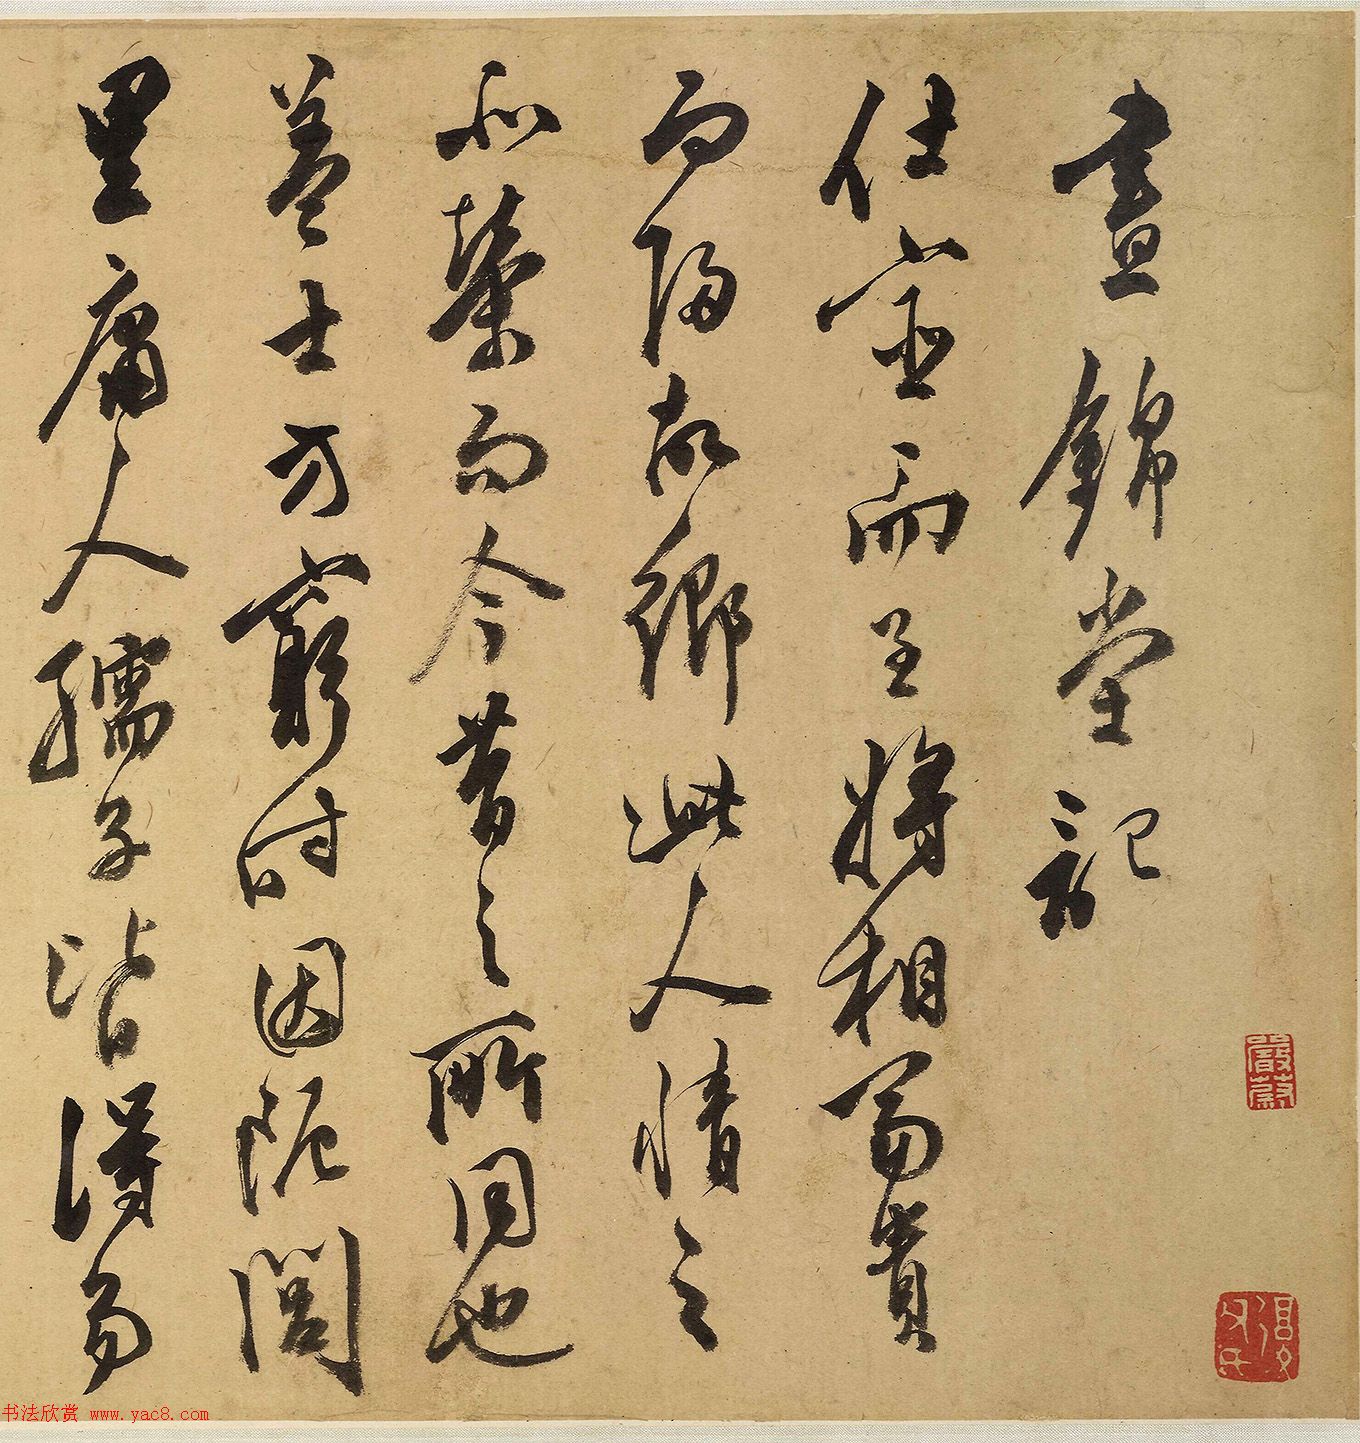 晝錦堂記
仕宦而至將相富貴
而歸故鄉此人情之
所榮而今昔之所同也
蓋士方窮時困阨閭
里庸人孺子皆得易
嚴蔚
书法欣赏 www.yac8.com